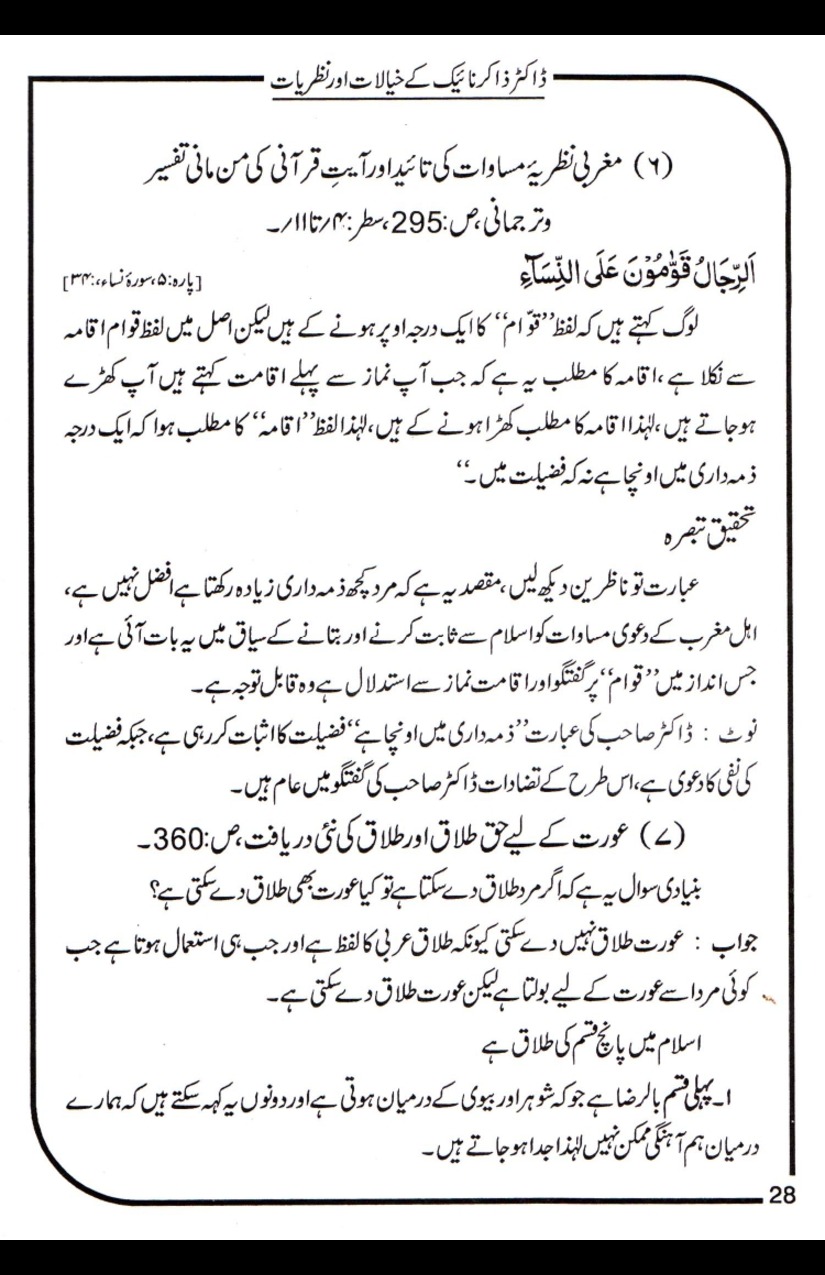 ڈاکٹر ذاکر نائیک کے خیالات اور نظریات
(۶) مغربی نظریۂ مساوات کی تائید اور آیتِ قرآنی کی من مانی تفسیر
وترجمانی،ص:295،سطر:۴/تا۱۱/۔
اَلرِّجَالُ قَوّٰمُوْنَ عَلَی النِّسَآءِ [پارہ:۵،سورۂ نساء،:۳۴]
لوگ کہتے ہیں کہ لفظ ’’قوّام‘‘ کا ایک درجہ اوپر ہونے کے ہیں لیکن اصل میں لفظ قوام اقامہ
سے نکلا ہے ،اقامہ کا مطلب یہ ہے کہ جب آپ نماز سے پہلے اقامت کہتے ہیں آپ کھڑے
ہوجاتے ہیں ،لہٰذا اقامہ کا مطلب کھڑا ہونے کے ہیں،لہٰذا لفظ ’’اقامہ‘‘ کا مطلب ہوا کہ ایک درجہ
ذمہ داری میں اونچا ہے نہ کہ فضیلت میں ۔‘‘
تحقیق تبصرہ
عبارت تو ناظرین دیکھ لیں ،مقصد یہ ہے کہ مرد کچھ ذمہ داری زیادہ رکھتا ہے افضل نہیں ہے،
اہل مغرب کے دعوی مساوات کو اسلام سے ثابت کرنے اور بتانے کے سیاق میں یہ بات آئی ہے اور
جس انداز میں ’’قوام‘‘ پر گفتگو اور اقامت نماز سے استدلال ہے وہ قابل توجہ ہے۔
نوٹ : ڈاکٹر صاحب کی عبارت ’’ذمہ داری میں اونچا ہے‘‘ فضیلت کا اثبات کررہی ہے،جبکہ فضیلت
کی نفی کا دعوی ہے،اس طرح کے تضادات ڈاکٹر صاحب کی گفتگو میں عام ہیں۔
(۷) عورت کے لیے حق طلاق اور طلاق کی نئی دریافت،ص:360۔
بنیادی سوال یہ ہے کہ اگر مرد طلاق دے سکتا ہے تو کیا عورت بھی طلاق دے سکتی ہے؟
جواب : عورت طلاق نہیں دے سکتی کیونکہ طلاق عربی کا لفظ ہے اور جب ہی استعمال ہوتا ہے جب
کوئی مرد اسے عورت کے لیے بولتا ہے لیکن عورت طلاق دے سکتی ہے۔
اسلام میں پانچ قسم کی طلاق ہے
۱۔پہلی قسم بالرضا ہے جو کہ شوہر اور بیوی کے درمیان ہوتی ہے اور دونوں یہ کہہ سکتے ہیں کہ ہمارے
درمیان ہم آہنگی ممکن نہیں لہٰذا جدا ہوجاتے ہیں۔
28